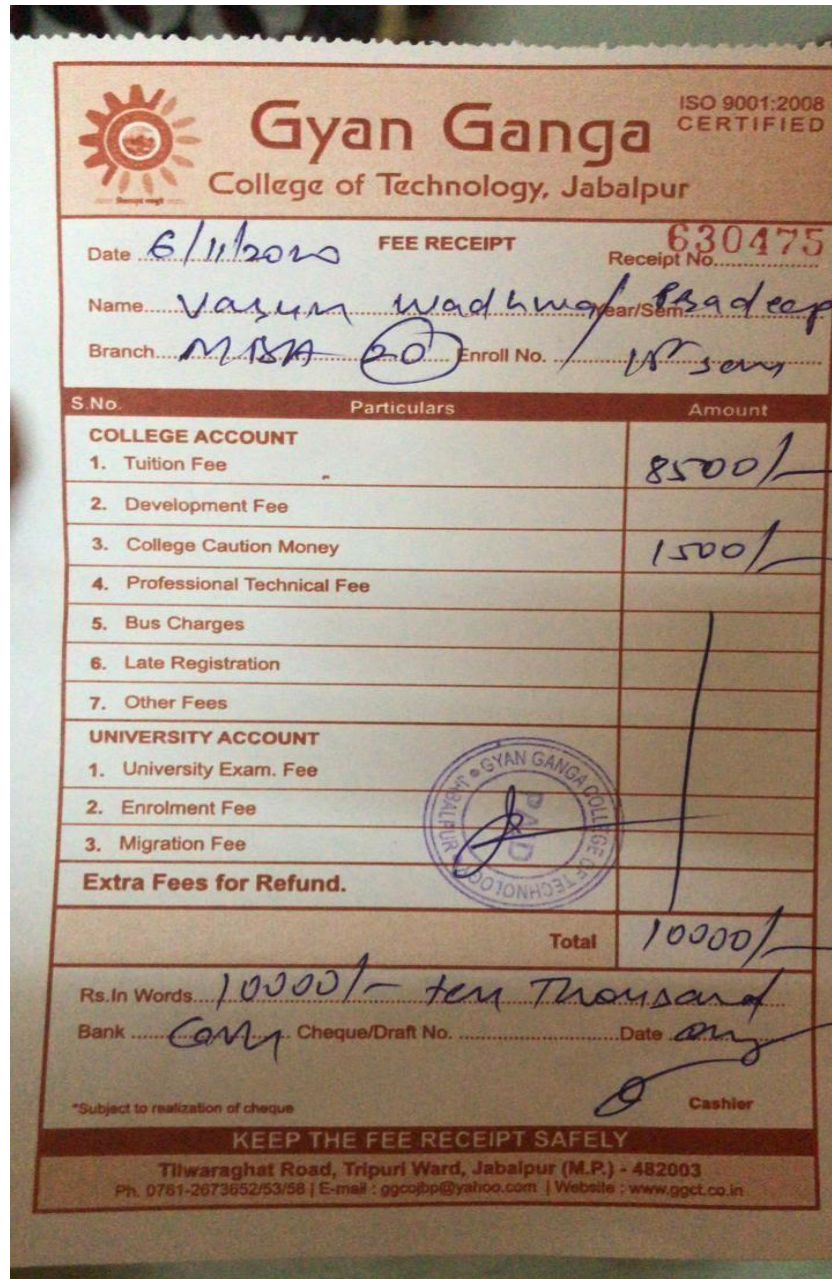 ISO 9001:2008
CERTIFIED
Gyan Ganga
College of Technology, Jabalpur
Date 6/11/2020 FEE RECEIPT Receipt No. 630475
Name Wadhwa/ Year/Sem.
Branch MBA 20 Enroll No. Ist sem
S.No. Particulars Amount
COLLEGE ACCOUNT
1. Tuition Fee 8500/-
2. Development Fee
3. College Caution Money 1500/-
4. Professional Technical Fee
5. Bus Charges
6. Late Registration
7. Other Fees
UNIVERSITY ACCOUNT
1. University Exam. Fee
2. Enrolment Fee
3. Migration Fee
GYAN GANGA COLLEGE OF TECHNOLOGY JABALPUR
PAID
Extra Fees for Refund.
Total 10000/-
Rs.In Words 10000/- ten Thousand
Bank Cheque/Draft No. Date
*Subject to realization of cheque Cashier
KEEP THE FEE RECEIPT SAFELY
Tilwaraghat Road, Tripuri Ward, Jabalpur (M.P.) - 482003
Ph. 0761-2673652/53/58 | E-mail : ggcojbp@yahoo.com | Website : www.ggct.co.in